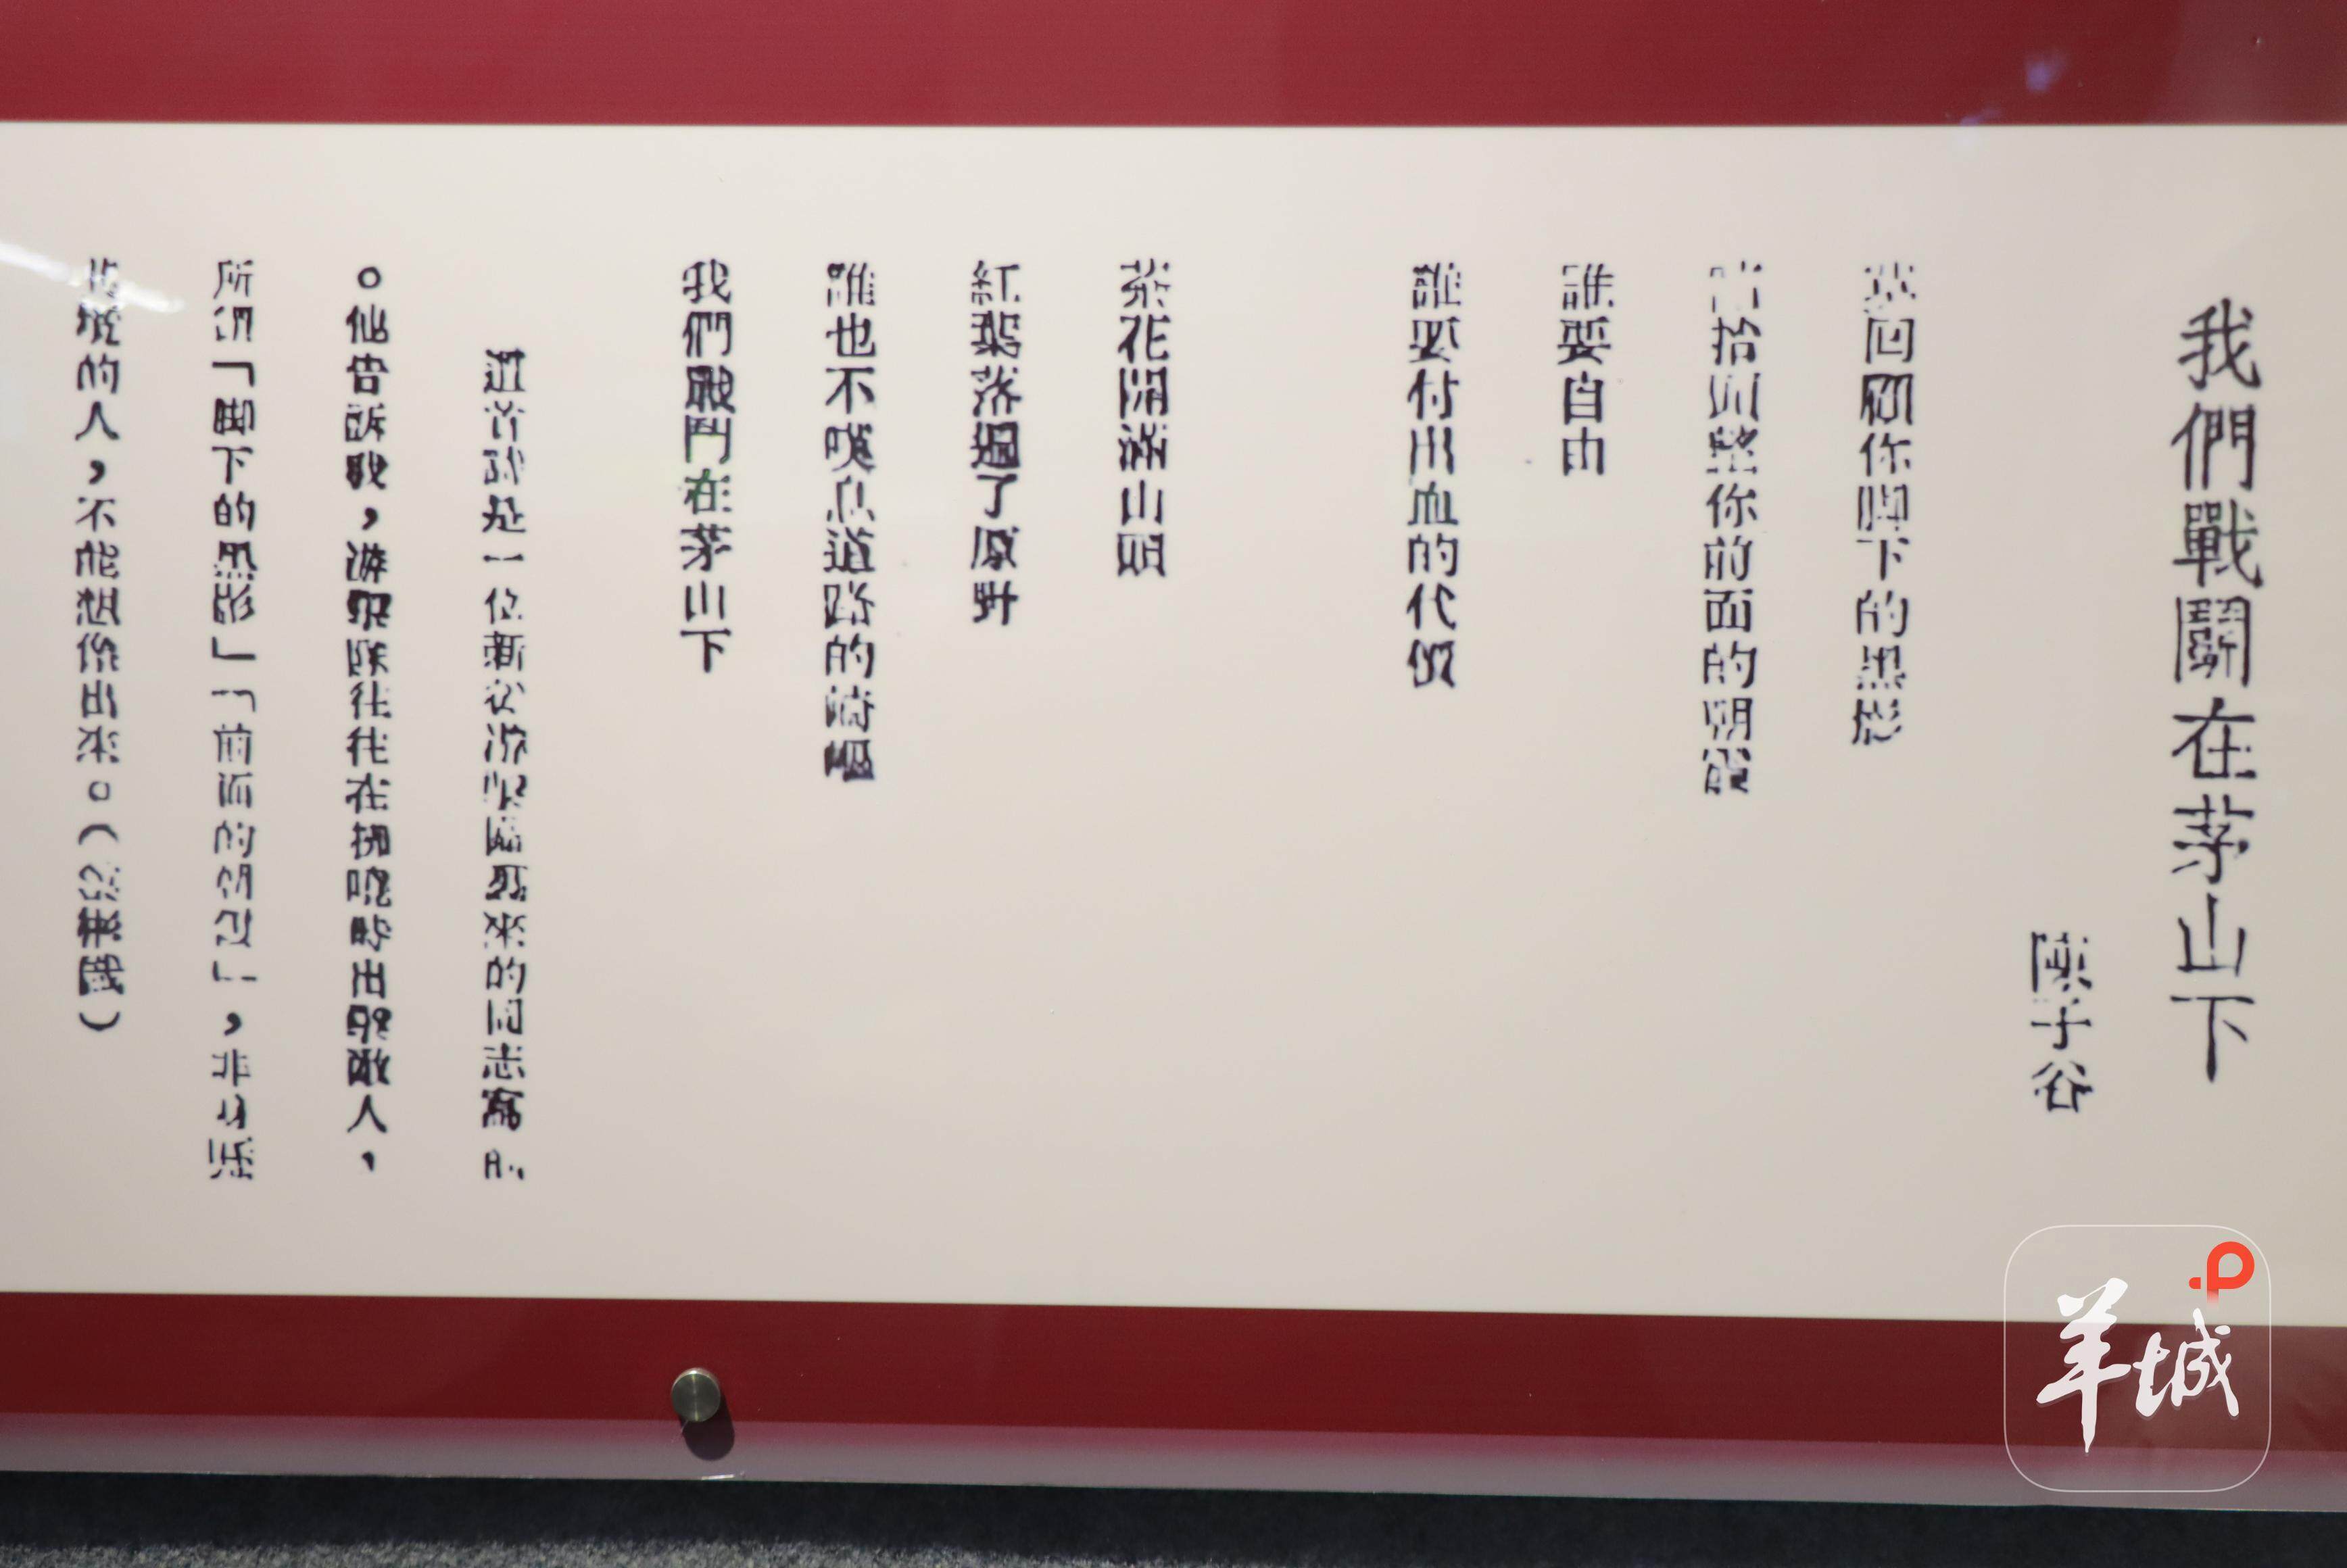 我們戰鬪在茅山下
陳子谷
回顧你脚下的黑影
抬頭望你前面的明霞
誰要自由
誰要付出血的代價
茶花開滿山頭
紅葉落遍了原野
誰也不嘆息道路的崎嶇
我們戰鬥在茅山下
這首詩是一位新從游擊區來的同志寫的
。他告訴我，游擊隊往往在拂曉時出擊敵人，
所謂「脚下的黑影」「前面的明霞」，非身歷
其境的人，不能想像出來。（國）
羊城